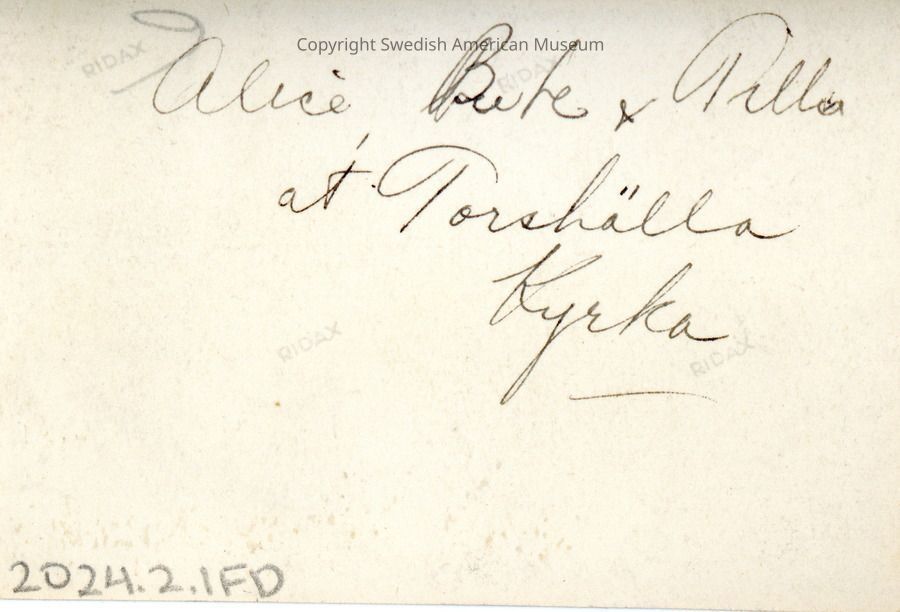 Copyright Swedish American Museum
RIDAX RIDAX
Alice & Pilla
at Torshälla
Kyrka
RIDAX RIDAX
2024.2.1FD